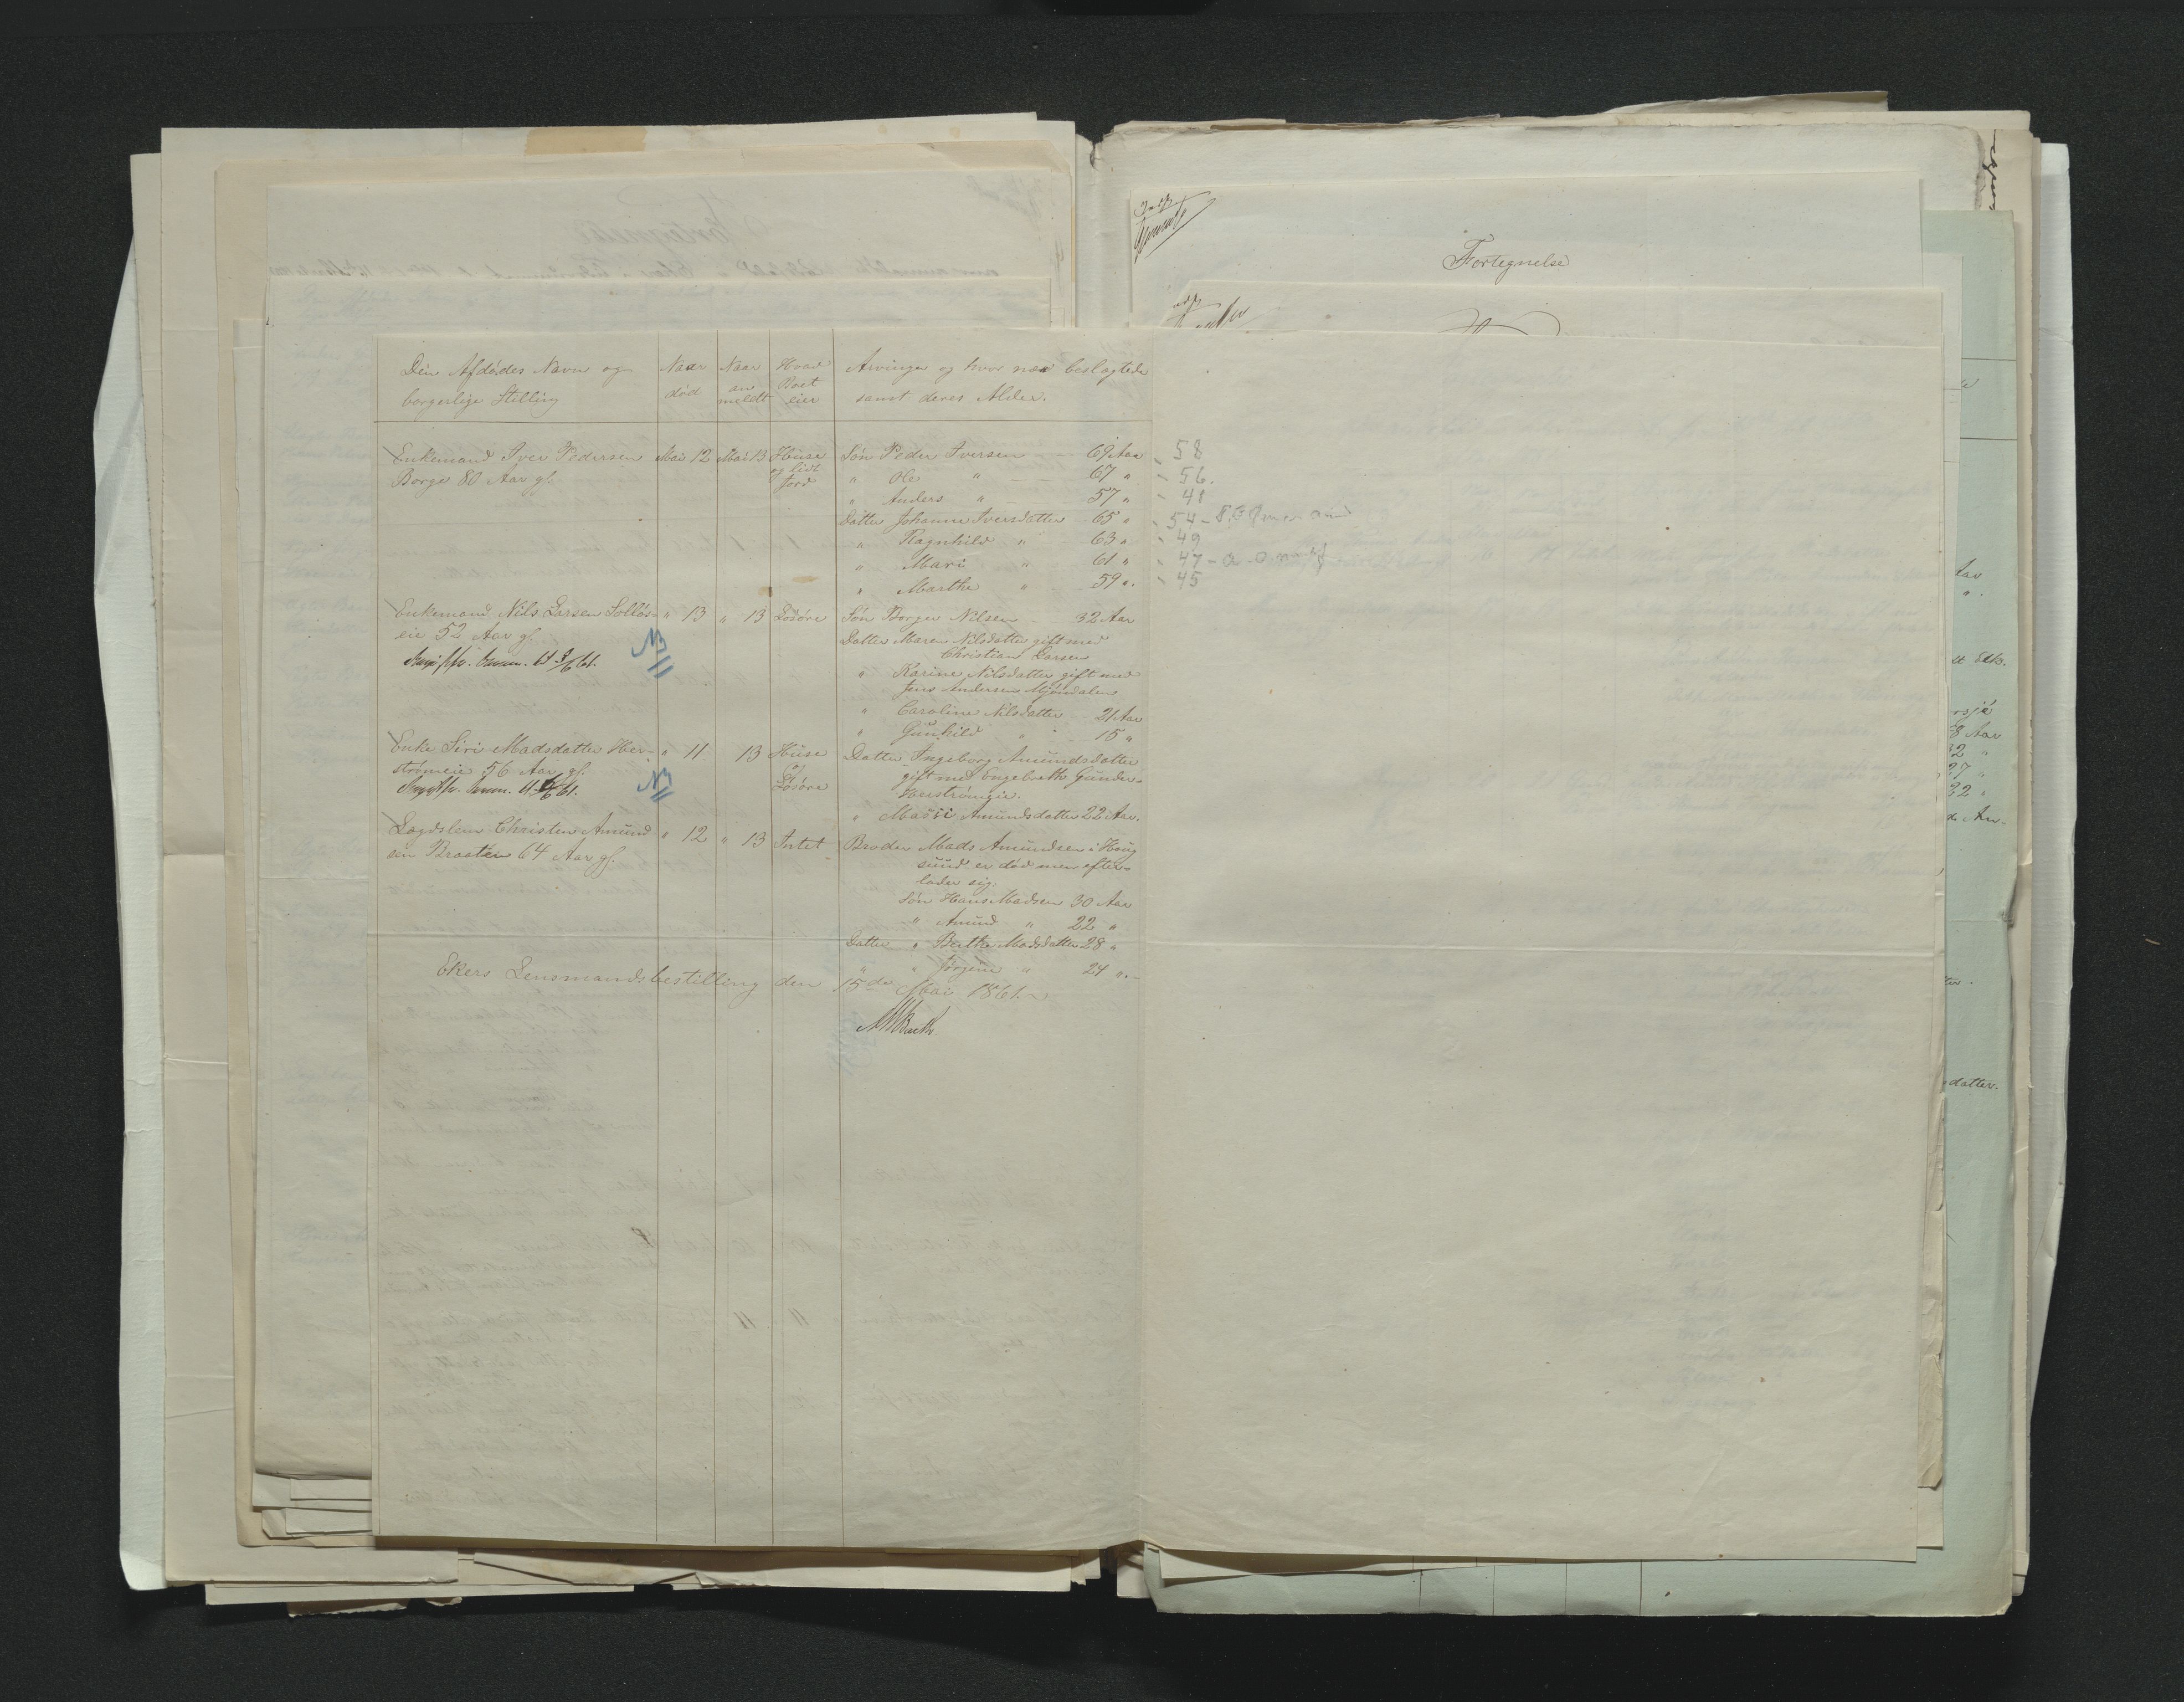 Fortegnelse
Den Afdødes Navn og borgerlige Stilling
Naar død
Naar anmeldt
Hvad Boet eier
Arvinger og hvor nær beslægtede samt deres Alder.
Enkemand Iver Pedersen Mai 12 Mai 13 Huse Søn Peder Iversen 69 Aar - 58
Borge 80 Aar gl. og lidt Jord " Ole " 67 " - 56.
" Anders " 57 " - 48
Datter Johanne Iversdatter 65 " - 54 -
" Ragnhild " 63 " - 49
" Mari " 61 " - 47 -
" Marthe " 59 " - 45
Enkemand Nils Larsen Solløs- " 13 " 13 Løsøre Søn Borger Nilsen 32 Aar
eie 52 Aar gl. Datter Maren Nilsdatter gift med
Christian Larsen
" Karine Nilsdatter gift med
Jens Andersen Mjøndalen
" Caroline Nilsdatter 21 Aar
" Gunhild " 15 "
Enke Siri Madsdatter Her- " 11 13 Huse Datter Ingeborg Amundsdatter
strømeie 56 Aar gl. og Løsøre gift med Engebreth Gunder-
Herstrømeie.
" Mari Amundsdatter 22 Aar.
Lægdslem Christen Amund " 12 " 13 Intet Broder Mads Amundsen i Houg
sen Braaten 64 Aar gl. sund er død men efter-
lader sig:
Søn Hans Madsen 30 Aar
" Amund " 22 "
Datter " Berthe Madsdatter 28 "
" " Jørgine " 24 "
Ekers Lensmandsbestilling den 15de Mai 1861.